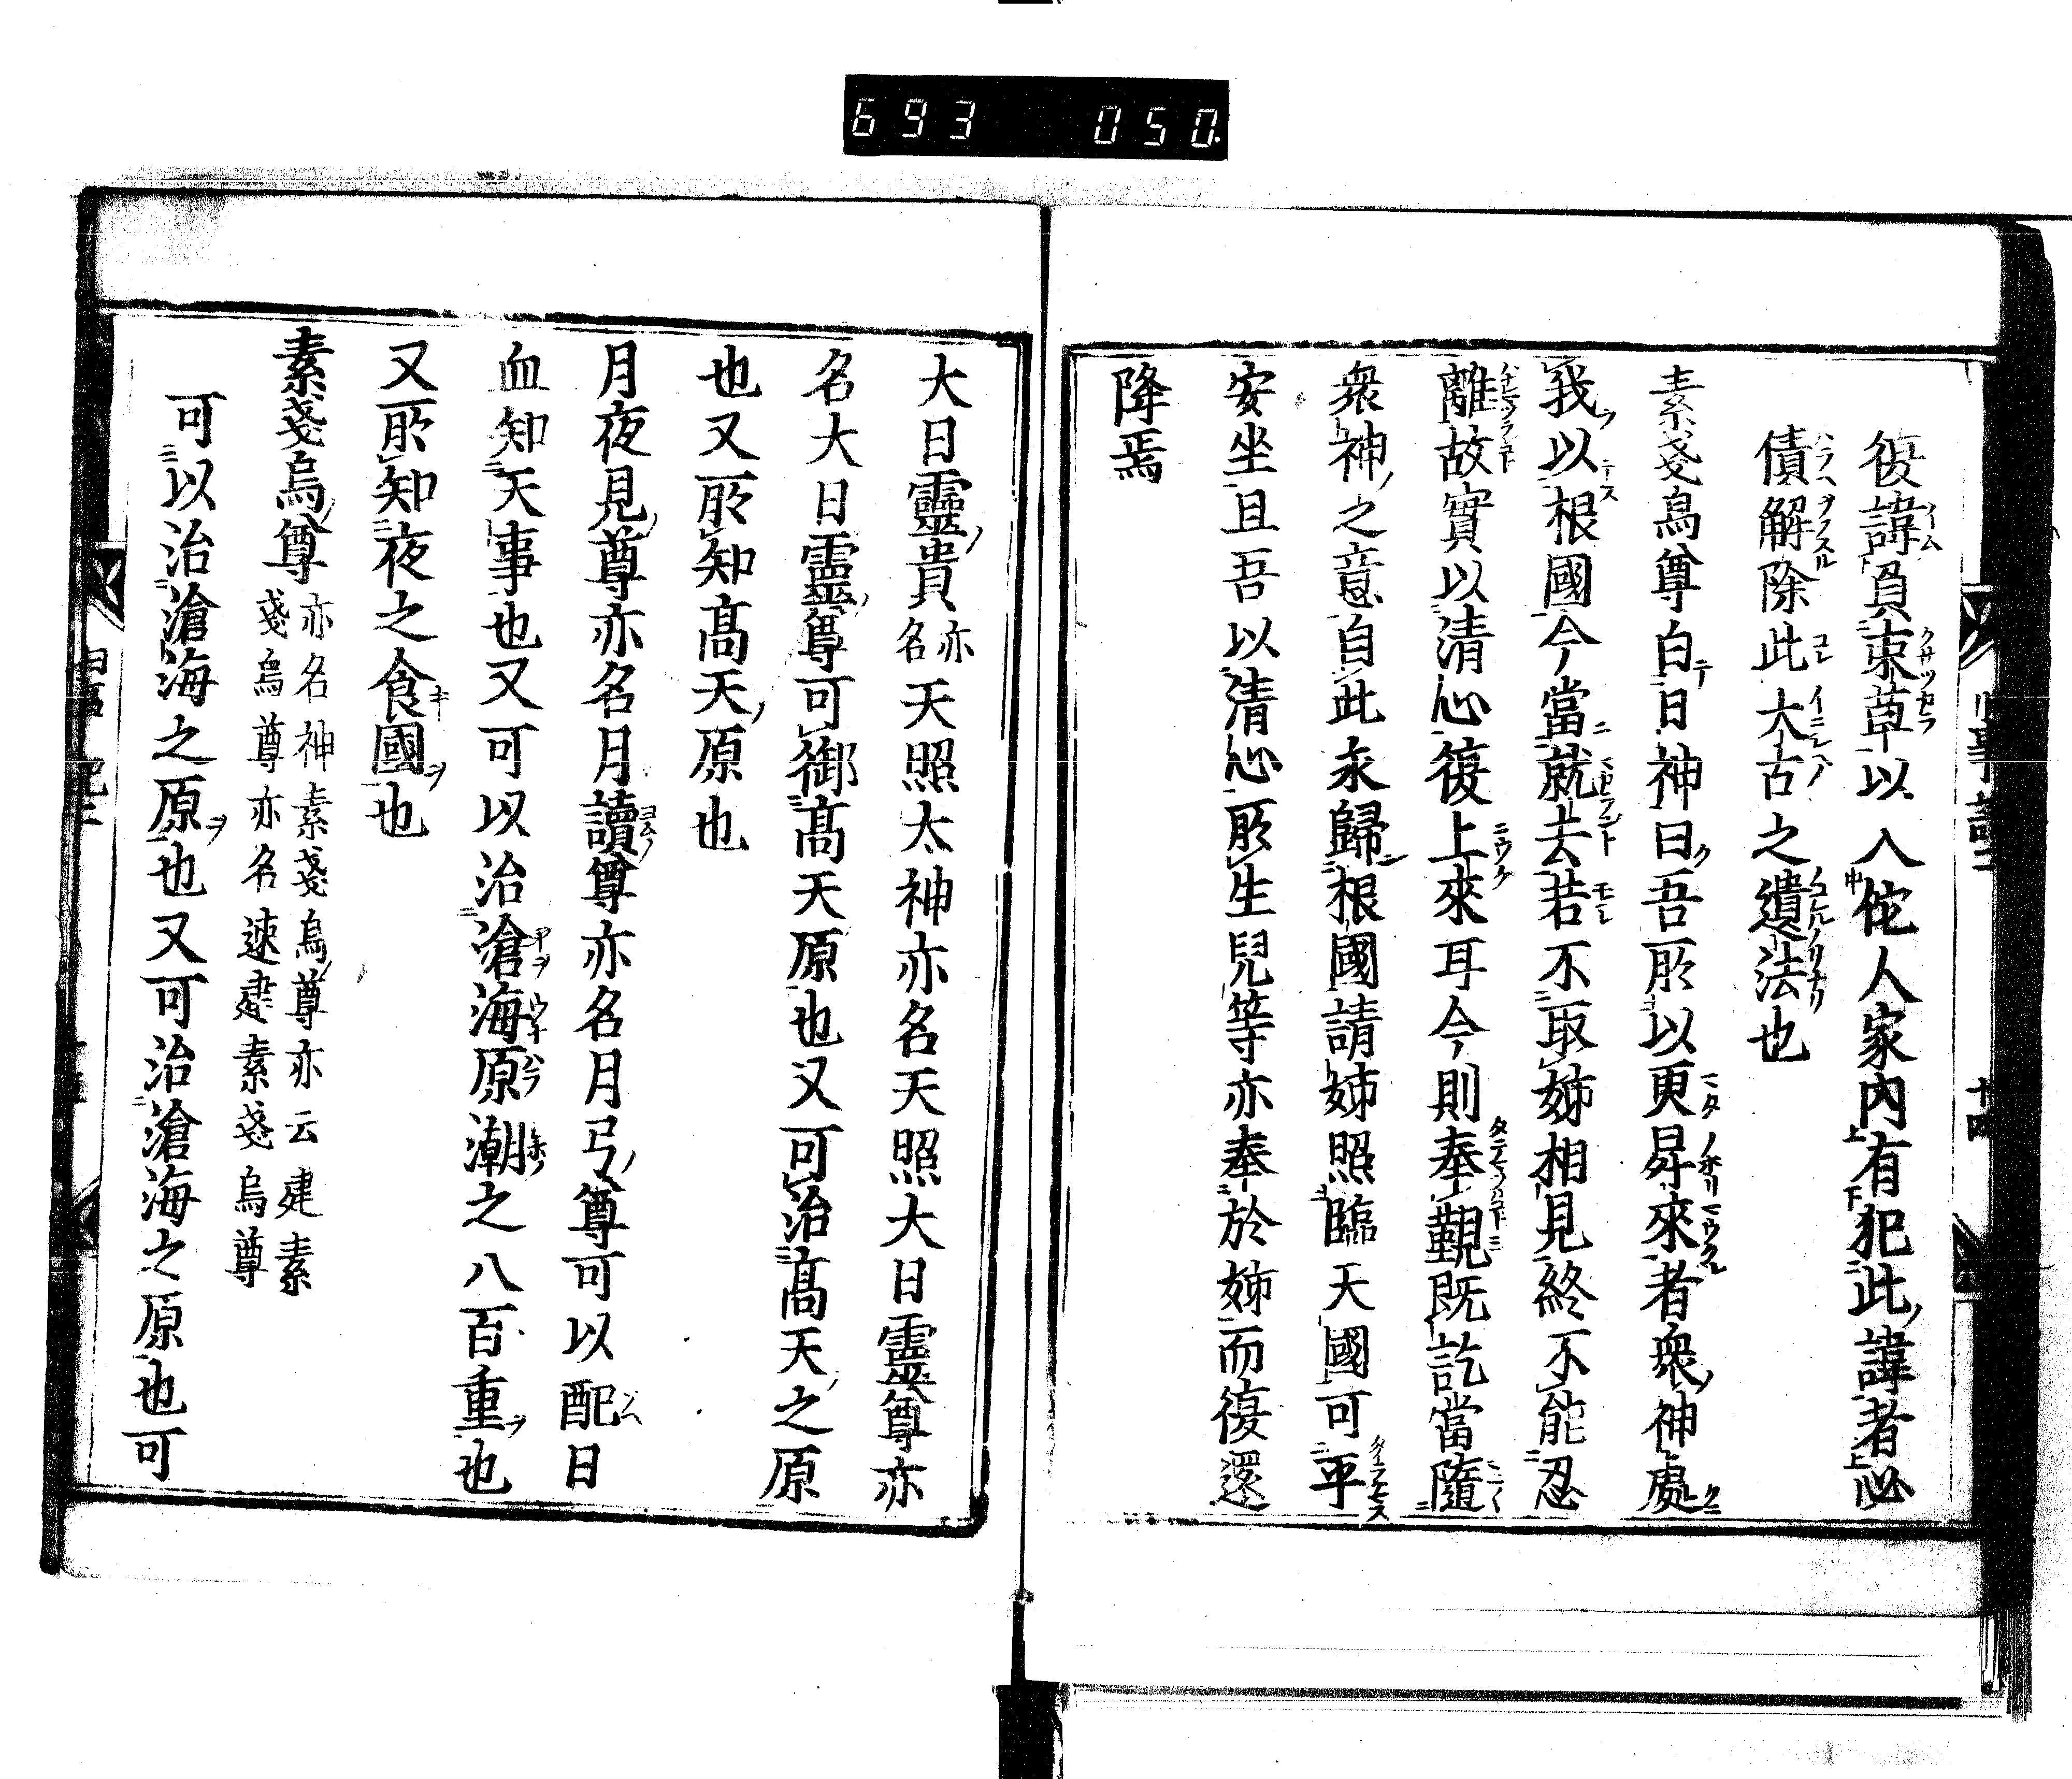 693 050
復諱負束草以入佗人家内有犯此諱者必
債解除此太古之遺法也
素戔烏尊白日神曰吾所以更昇來者衆神處
我以根國今當就去若不取姉相見終不能忍
離故實以清心復上來耳今則奉覲既訖當隨
衆神之意自此永歸根國請姉照臨天國可平
安坐且吾以清心所生兒等亦奉於姉而復還
降焉
大日靈貴亦名天照太神亦名天照大日靈尊亦
名大日靈尊可御髙天原也又可治髙天之原
也又所知髙天原也
月夜見尊亦名月讀尊亦名月弓尊可以配日
血知天事也又可以治滄海原潮之八百重也
又所知夜之食國也
素戔烏尊亦名神素戔烏尊亦云建素
戔烏尊亦名速建素戔烏尊
可以治滄海之原也又可治滄海之原也可